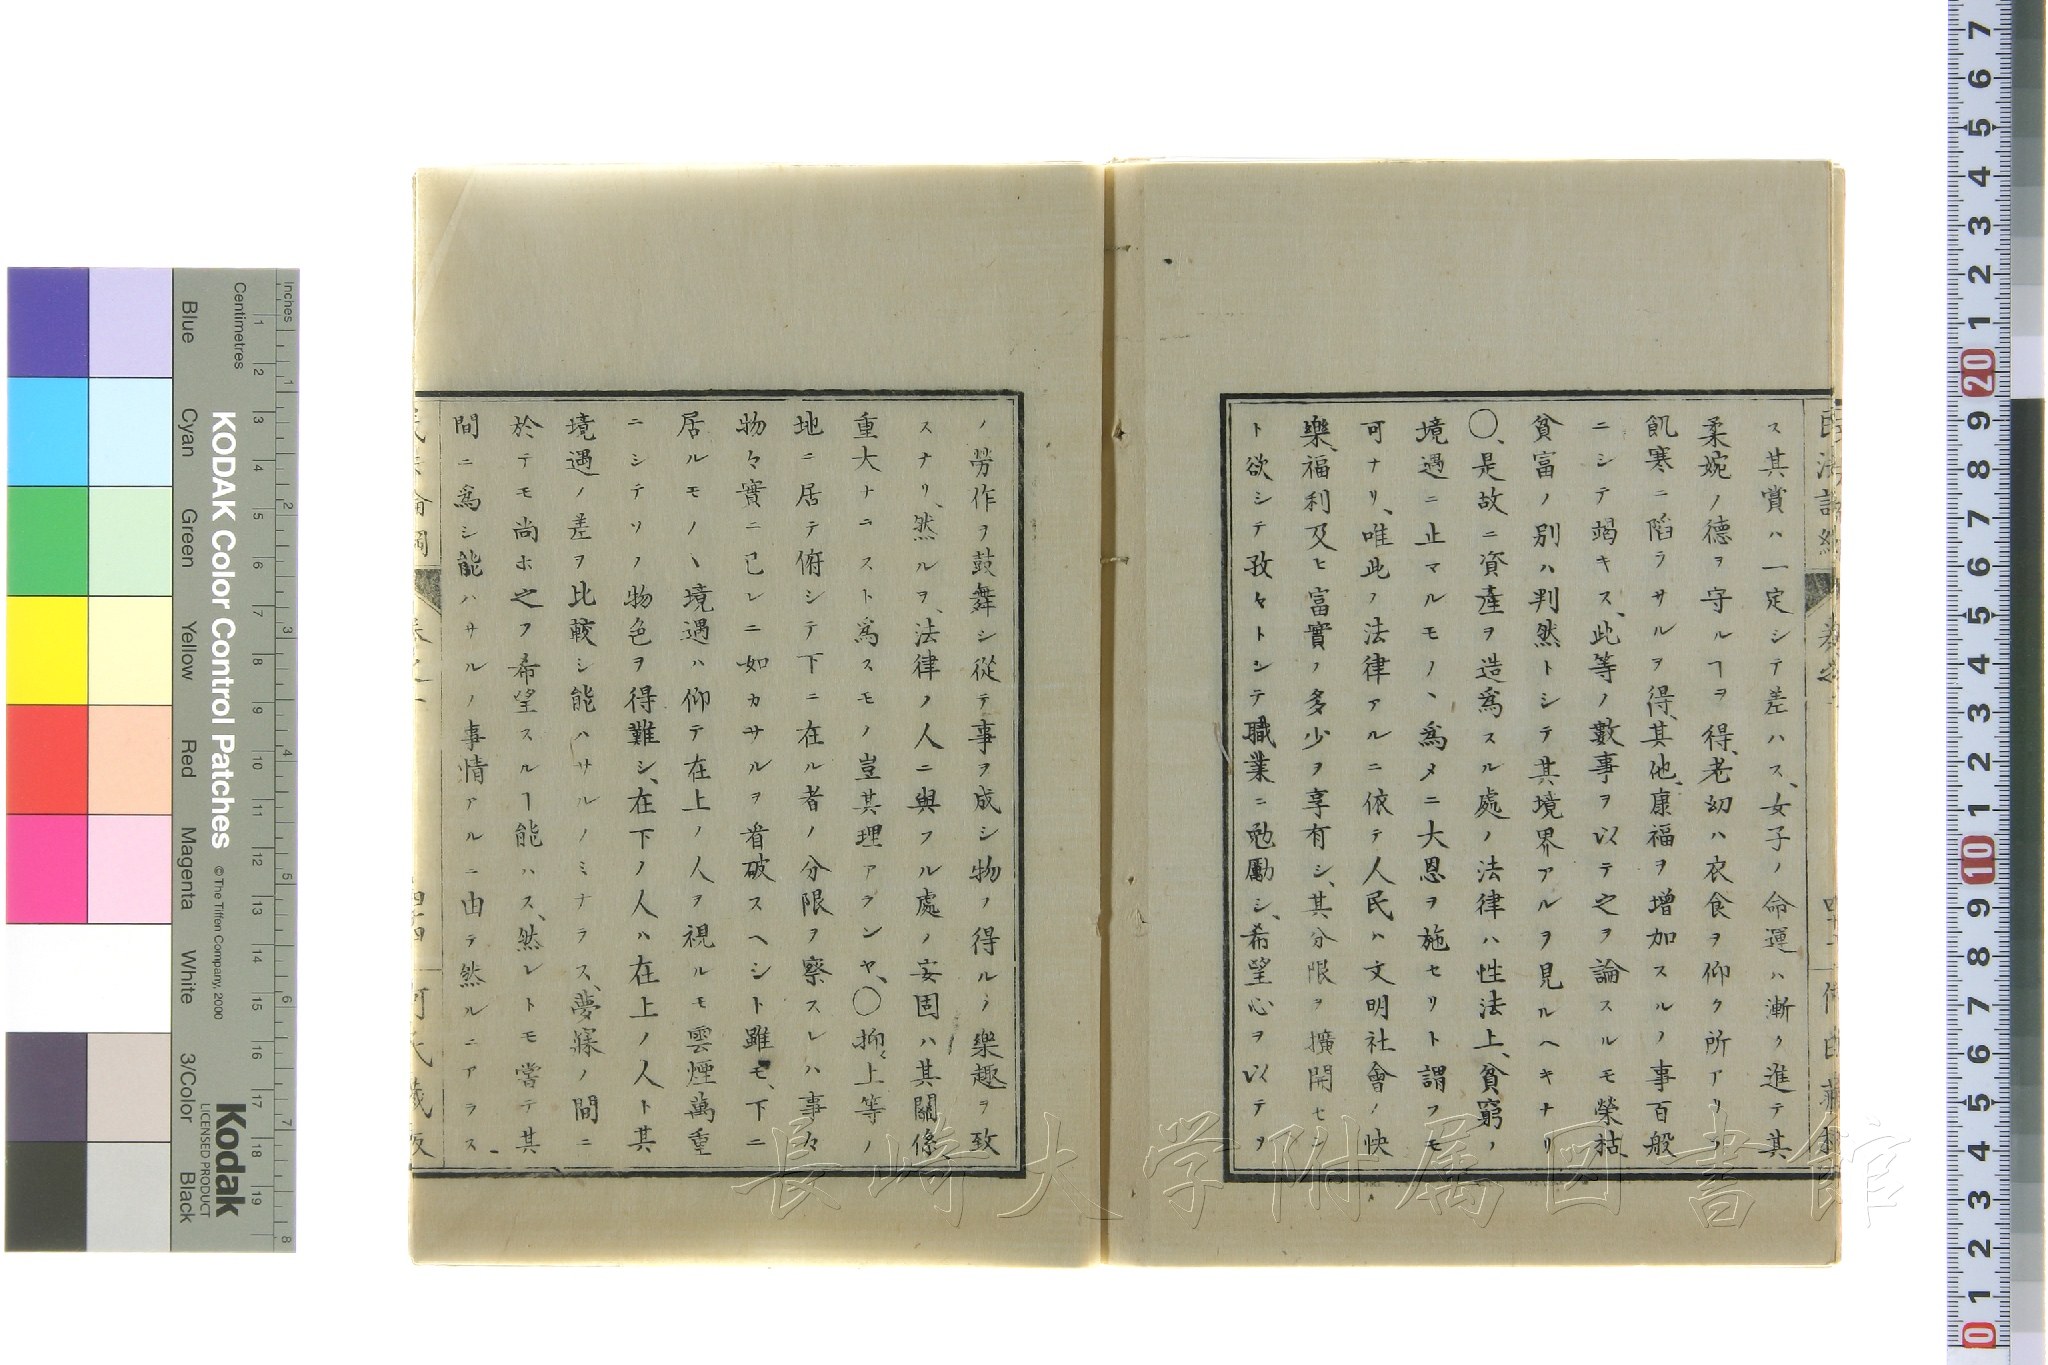 ス其賞ハ一定シテ差ハス、女子ノ命運ハ漸ク進テ其
柔婉ノ德ヲ守ルヿヲ得、老幼ハ衣食ヲ仰ク所アリテ
飢寒ニ陷ラサルヲ得、其他、康福ヲ增加スルノ事百般
ニシテ竭キス、此等ノ數事ヲ以テ之ヲ論スルモ榮枯
貧富ノ別ハ判然トシテ其境界アルヲ見ルヘキナリ
〇、是故ニ資產ヲ造爲スル處ノ法律ハ性法上、貧窮ノ
境遇ニ止マルモノヽ爲メニ大恩ヲ施セリト謂フモ
可ナリ、唯此ノ法律アルニ依テ人民ハ文明社會ノ快
樂福利及ヒ富實ノ多少ヲ享有シ、其分限ヲ擴開セン
ト欲シテ孜々トシテ職業ニ勉勵シ、希望心ヲ以テヲ
ノ勞作ヲ鼓舞シ從テ事ヲ成シ物ノ得ルノ樂趣ヲ致
スナリ、然ルヲ、法律ノ人ニ與フル處ノ安固ハ其關係
重大ナニスト爲スモノ豈其理アランヤ、〇抑上等ノ
地ニ居テ俯シテ下ニ在ル者ノ分限ヲ察スレハ事々
物々實ニ己レニ如カサルヲ看破スヘシト雖モ、下ニ
居ルモノヽ境遇ハ仰テ在上ノ人ヲ視ルモ雲煙萬重
ニシテソノ物色ヲ得難シ、在下ノ人ハ在上ノ人ト其
境遇ノ差ヲ比較シ能ハサルノミナラス、夢寐ノ間ニ
於テモ尚ホ之ヲ希望スルヿ能ハス、然レトモ嘗テ其
間ニ爲シ能ハサルノ事情アルニ由テ然ルニアラス
KODAK Color Control Patches
© The Tiffen Company, 2000
Kodak
LICENSED PRODUCT
Inches
Centimetres
Blue
Cyan
Green
Yellow
Red
Magenta
White
3/Color
Black
長崎大学附属図書館